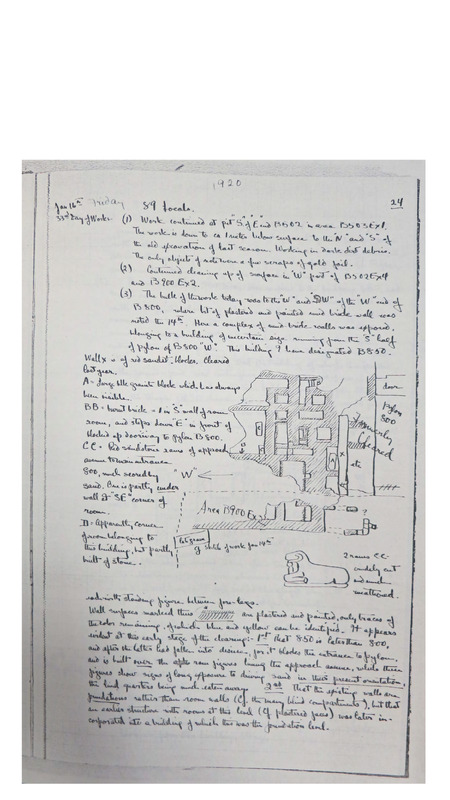 1920
24
Jan 16th Friday 89 focals.
33rd Day of Work.
(1) Work continued at pit "S" of E end B502 in area B503 Ex1.
The work is down to ca 1 meter below surface to the "N" and "S" of
the old excavation of last season. Working in dark dirt debris.
The only objects of note were a few scraps of gold foil.
(2) Continued clearing up of surface in "W" part of B502 Ex4
and B900 Ex2.
(3) The bulk of the work today was to the "W" and "SW" of the "W" end of
B800, where bit of plastered and painted mud brick wall was
noted the 14th. Here a complex of mud brick walls was exposed,
belonging to a building of uncertain age running from the "S" half
of pylon of B800 "W". This building I have designated B850.
Wall X is of red sandst. blocks. Cleared
last year.
A = large blk granite block which has always
been visible.
BB = burnt brick = in "S" wall of room
room, and steps down "E" in front of
blocked up doorway to pylon B800.
CC = Red sandstone rams of approach
avenue to main entrance
800, much scored by
sand. One is partly under
wall at "SE" corner of
room.
D = Apparently corner
of room belonging to
this building, but partly
built of stone.
"W"
door
Pylon
800
Formerly
Cleared
X
etc
Area B900 Ex3
?
Last year
of work Jan 14th
2 rams CC.
crudely cut
and much
weathered.
and with standing figure between fore-legs.
Wall surfaces marked thus are plastered and painted, only traces of
the color remaining, of which blue and yellow can be identified. It appears
evident at this early stage of the clearing: 1st that 850 is later than 800,
and after the latter had fallen into decay, for it blocks the entrance to pylon,
and is built over the ram figures lining the approach avenue, while these
figures show signs of long exposure to driving sand in their present orientation,
the hind quarters being much eaten away. 2nd That the existing walls are
foundations rather than room walls (Cf. the many blind compartments), but that
an earlier structure with rooms at this level (Cf plastered faces) was later in-
corporated into a building of which this was the foundation level.